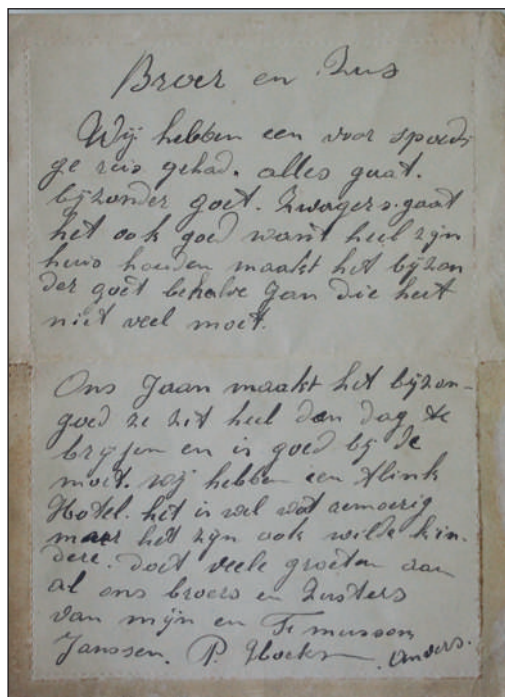 Broer en Zus
Wij hebben een voor spoedi
ge reis gehad. alles gaat.
bijzonder goet. Zwagers. gaat
het ook goed want heel zijn
huis houden maakt het bijzon
der goet behalve Jan die heit
niet veel moet.
Ons Jaan maakt het bijzon-
goed ze zit heel den dag te
breijen en is goed bij de
moet. wij hebben een flink
Hotel. het is wel wat
maar het zijn ook wilde kin-
dere. doet veele groeten aan
al ons broers en Zusters
van mijn en
Janssen. P.